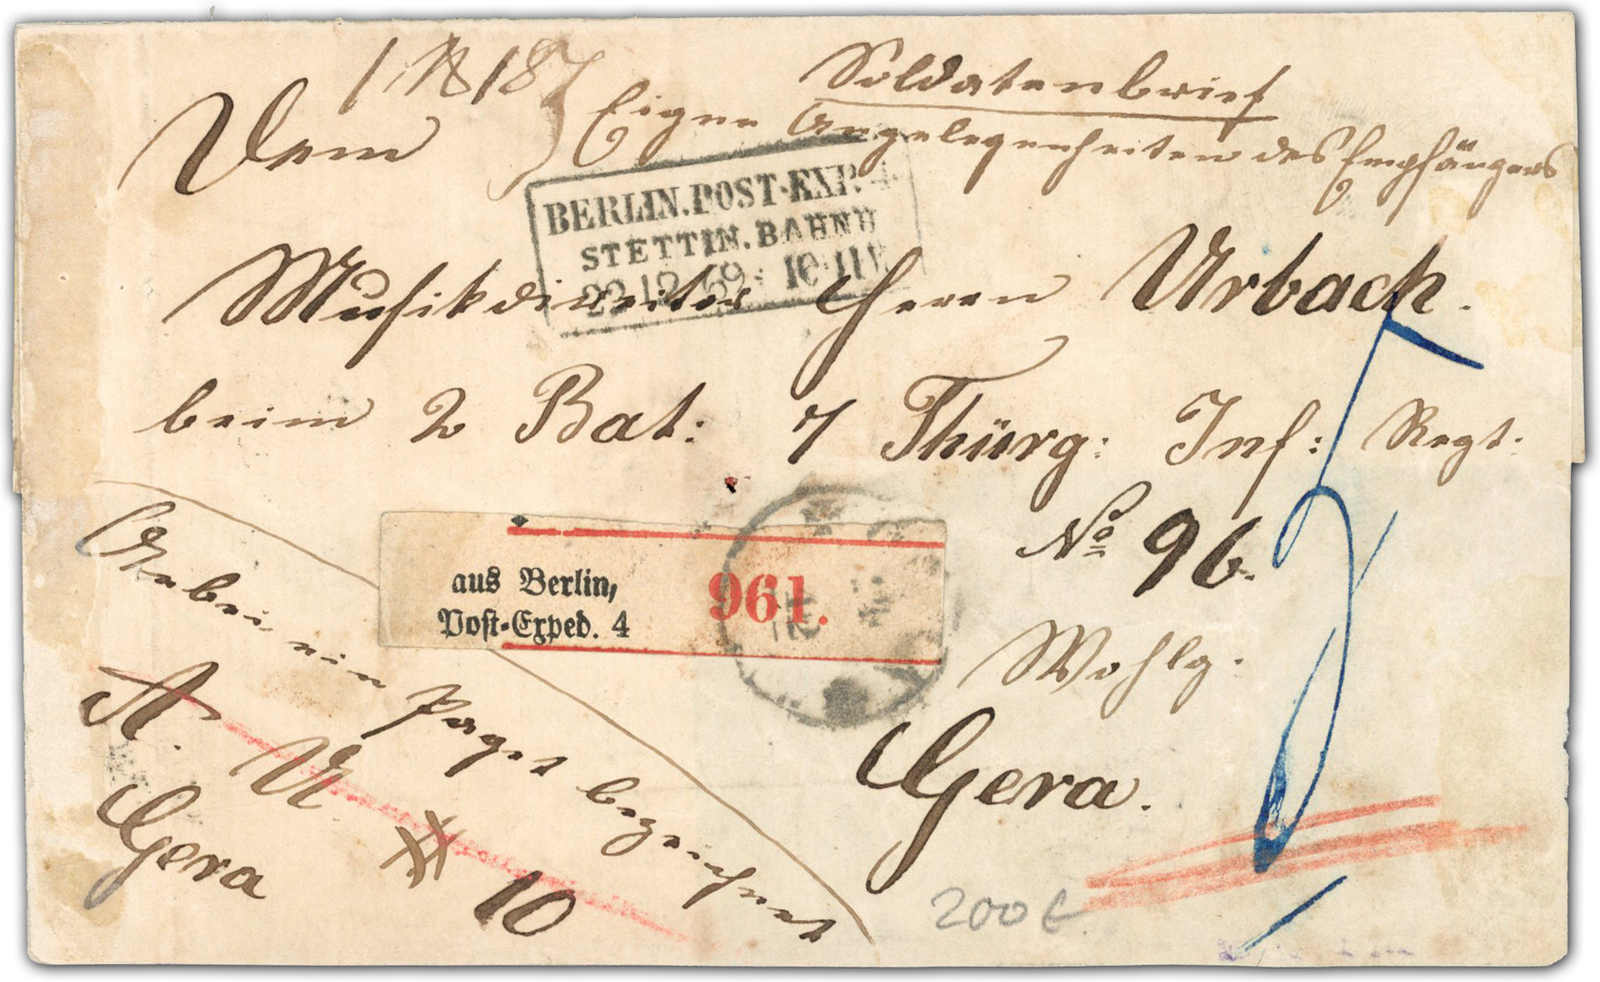 Soldatenbrief
Eigene Angelegenheiten des Empfängers
Dem
BERLIN.POST-EXP. 4.
STETTIN.BAHNH
22 12 69 10-11
Musikdirector Herrn Urbach.
beim 2 Bat: 7 Thürg: Inf: Regt:
No 96.
aus Berlin,
Post-Exped. 4
961.
Wohlg.
Gera.
Anbei ein Paget bezeichnet
A. U. # 10
Gera
200 €